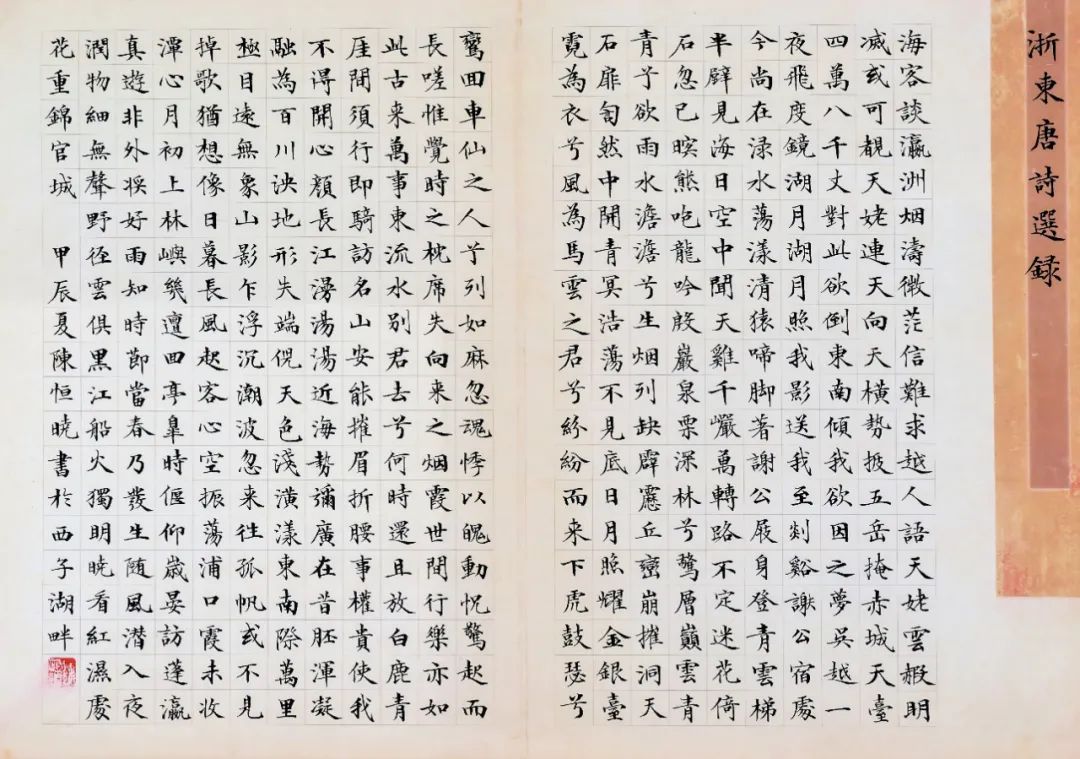 浙東唐詩選録
海客談瀛洲烟濤微茫信難求越人語天姥雲霞明
滅或可覩天姥連天向天橫勢拔五岳掩赤城天臺
四萬八千丈對此欲倒東南傾我欲因之夢吳越一
夜飛度鏡湖月湖月照我影送我至剡谿謝公宿處
今尚在渌水蕩漾清猿啼脚著謝公屐身登青雲梯
半壁見海日空中聞天雞千巖萬轉路不定迷花倚
石忽已暝熊咆龍吟殷巖泉栗深林兮驚層巔雲青
青兮欲雨水澹澹兮生烟列缺霹靂丘巒崩摧洞天
石扉訇然中開青冥浩蕩不見底日月照耀金銀臺
霓為衣兮風為馬雲之君兮紛紛而来下虎鼓瑟兮
鸞回車仙之人兮列如麻忽魂悸以魄動怳驚起而
長嗟惟覺時之枕席失向来之烟霞世間行樂亦如
此古来萬事東流水别君去兮何時還且放白鹿青
崖間須行即騎訪名山安能摧眉折腰事權貴使我
不得開心顔長江漫湯湯近海勢彌廣在昔胚渾凝
融為百川泱地形失端倪天色淺潢漾東南際萬里
極目遠無象山影乍浮沉潮波忽来往孤帆或不見
掉歌猶想像日暮長風起客心空振蕩浦口霞未收
潭心月初上林嶼幾邅回亭皐時偃仰歲晏訪蓬瀛
真遊非外奬好雨知時節當春乃發生随風潜入夜
潤物細無聲野径雲俱黑江船火獨明曉看紅濕處
花重錦官城 甲辰夏陳恒曉書於西子湖畔